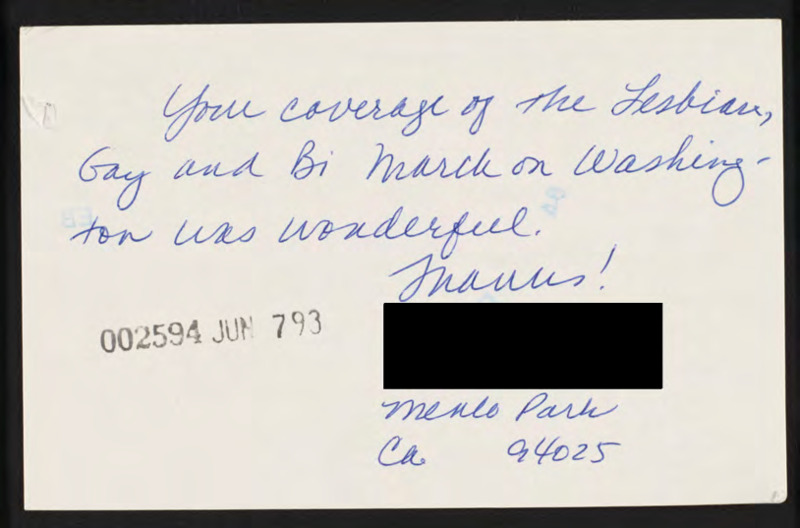 Your coverage of the Lesbian,
Gay and Bi March on Washing-
ton was wonderful.
Thanks!
002594 JUN 7 93
Menlo Park
Ca 94025